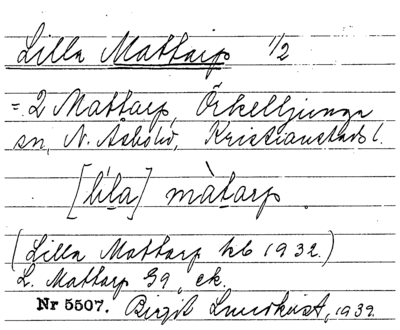 Lilla Mattarp 1/2
= 2 Mattarp, Örkelljunga
sn, N. Åsbo hd, Kristianstads l.
[líla] màtarp.
(Lilla Mattarp kb 1932.)
L. Mattarp G9, ek.
Nr 5507. Birgit Lundkvist, 1932.